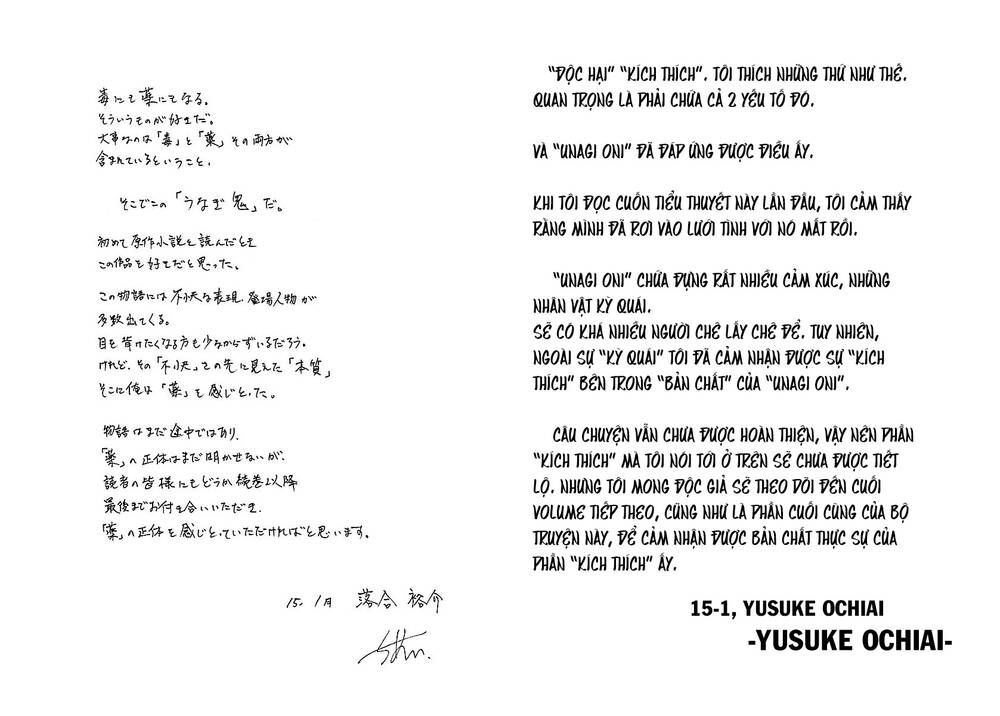 毒にも薬にでなる。
そういうものが好きだ。
大事なのは「毒」と「薬」その両方が
含まれているということ。
そこでこの「うなぎ鬼」だ。
初めて原作小説を読んだとき
この作品を好きだと思った。
この物語には不快な表現、登場人物が
多数出てくる。
目を背けたくなる方も少なからずいるだろう。
けれど、その「不快」さの先に見えた「本質」
そこに俺は「薬」を感じとった。
物語はまだ途中ではあり、
「薬」の正体はまだ明かせないが、
読者の皆様にもどうか続巻以降
最後までお付き合いいただき、
「薬」の正体を感じとっていただければと思います。
15. 1月 落合 裕介
“ĐỘC HẠI” “KÍCH THÍCH”. TÔI THÍCH NHỮNG THỨ NHƯ THẾ.
QUAN TRỌNG LÀ PHẢI CHỨA CẢ 2 YẾU TỐ ĐÓ.
VÀ “UNAGI ONI” ĐÃ ĐÁP ỨNG ĐƯỢC ĐIỀU ẤY.
KHI TÔI ĐỌC CUỐN TIỂU THUYẾT NÀY LẦN ĐẦU, TÔI CẢM THẤY
RẰNG MÌNH ĐÃ RƠI VÀO LƯỚI TÌNH VỚI NÓ MẤT RỒI.
“UNAGI ONI” CHỨA ĐỰNG RẤT NHIỀU CẢM XÚC, NHỮNG
NHÂN VẬT KỲ QUÁI.
SẼ CÓ KHÁ NHIỀU NGƯỜI CHÊ LẤY CHÊ ĐỂ. TUY NHIÊN,
NGOÀI SỰ “KỲ QUÁI” TÔI ĐÃ CẢM NHẬN ĐƯỢC SỰ “KÍCH
THÍCH” BÊN TRONG “BẢN CHẤT” CỦA “UNAGI ONI”.
CÂU CHUYỆN VẪN CHƯA ĐƯỢC HOÀN THIỆN, VẬY NÊN PHẦN
“KÍCH THÍCH” MÀ TÔI NÓI TỚI Ở TRÊN SẼ CHƯA ĐƯỢC TIẾT
LỘ. NHƯNG TÔI MONG ĐỘC GIẢ SẼ THEO DÕI ĐẾN CUỐI
VOLUME TIẾP THEO, CŨNG NHƯ LÀ PHẦN CUỐI CÙNG CỦA BỘ
TRUYỆN NÀY, ĐỂ CẢM NHẬN ĐƯỢC BẢN CHẤT THỰC SỰ CỦA
PHẦN “KÍCH THÍCH” ẤY.
15-1, YUSUKE OCHIAI
-YUSUKE OCHIAI-